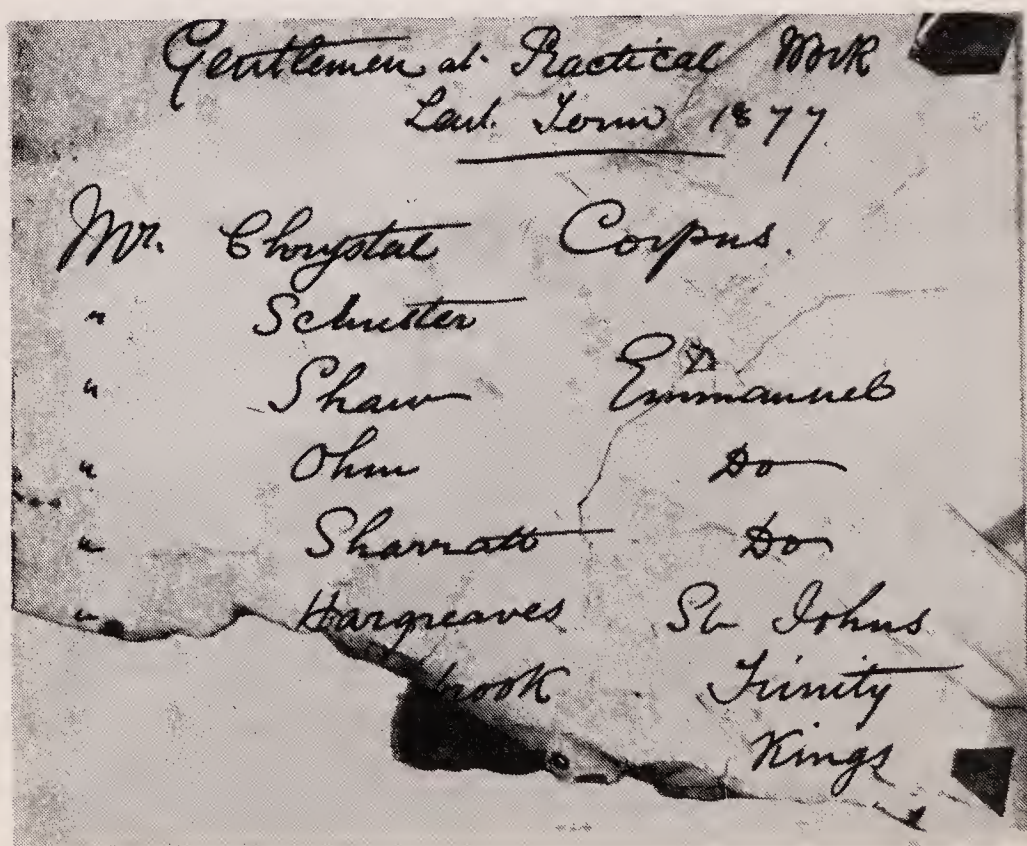 Gentlemen at Practical Work
Lent. Term 1877
Mr. Chrystal Corpus.
" Schuster
" Shaw Emmanuel
" Ohm Do
" Sharratt Do
" Hargreaves St Johns
Trinity
Kings